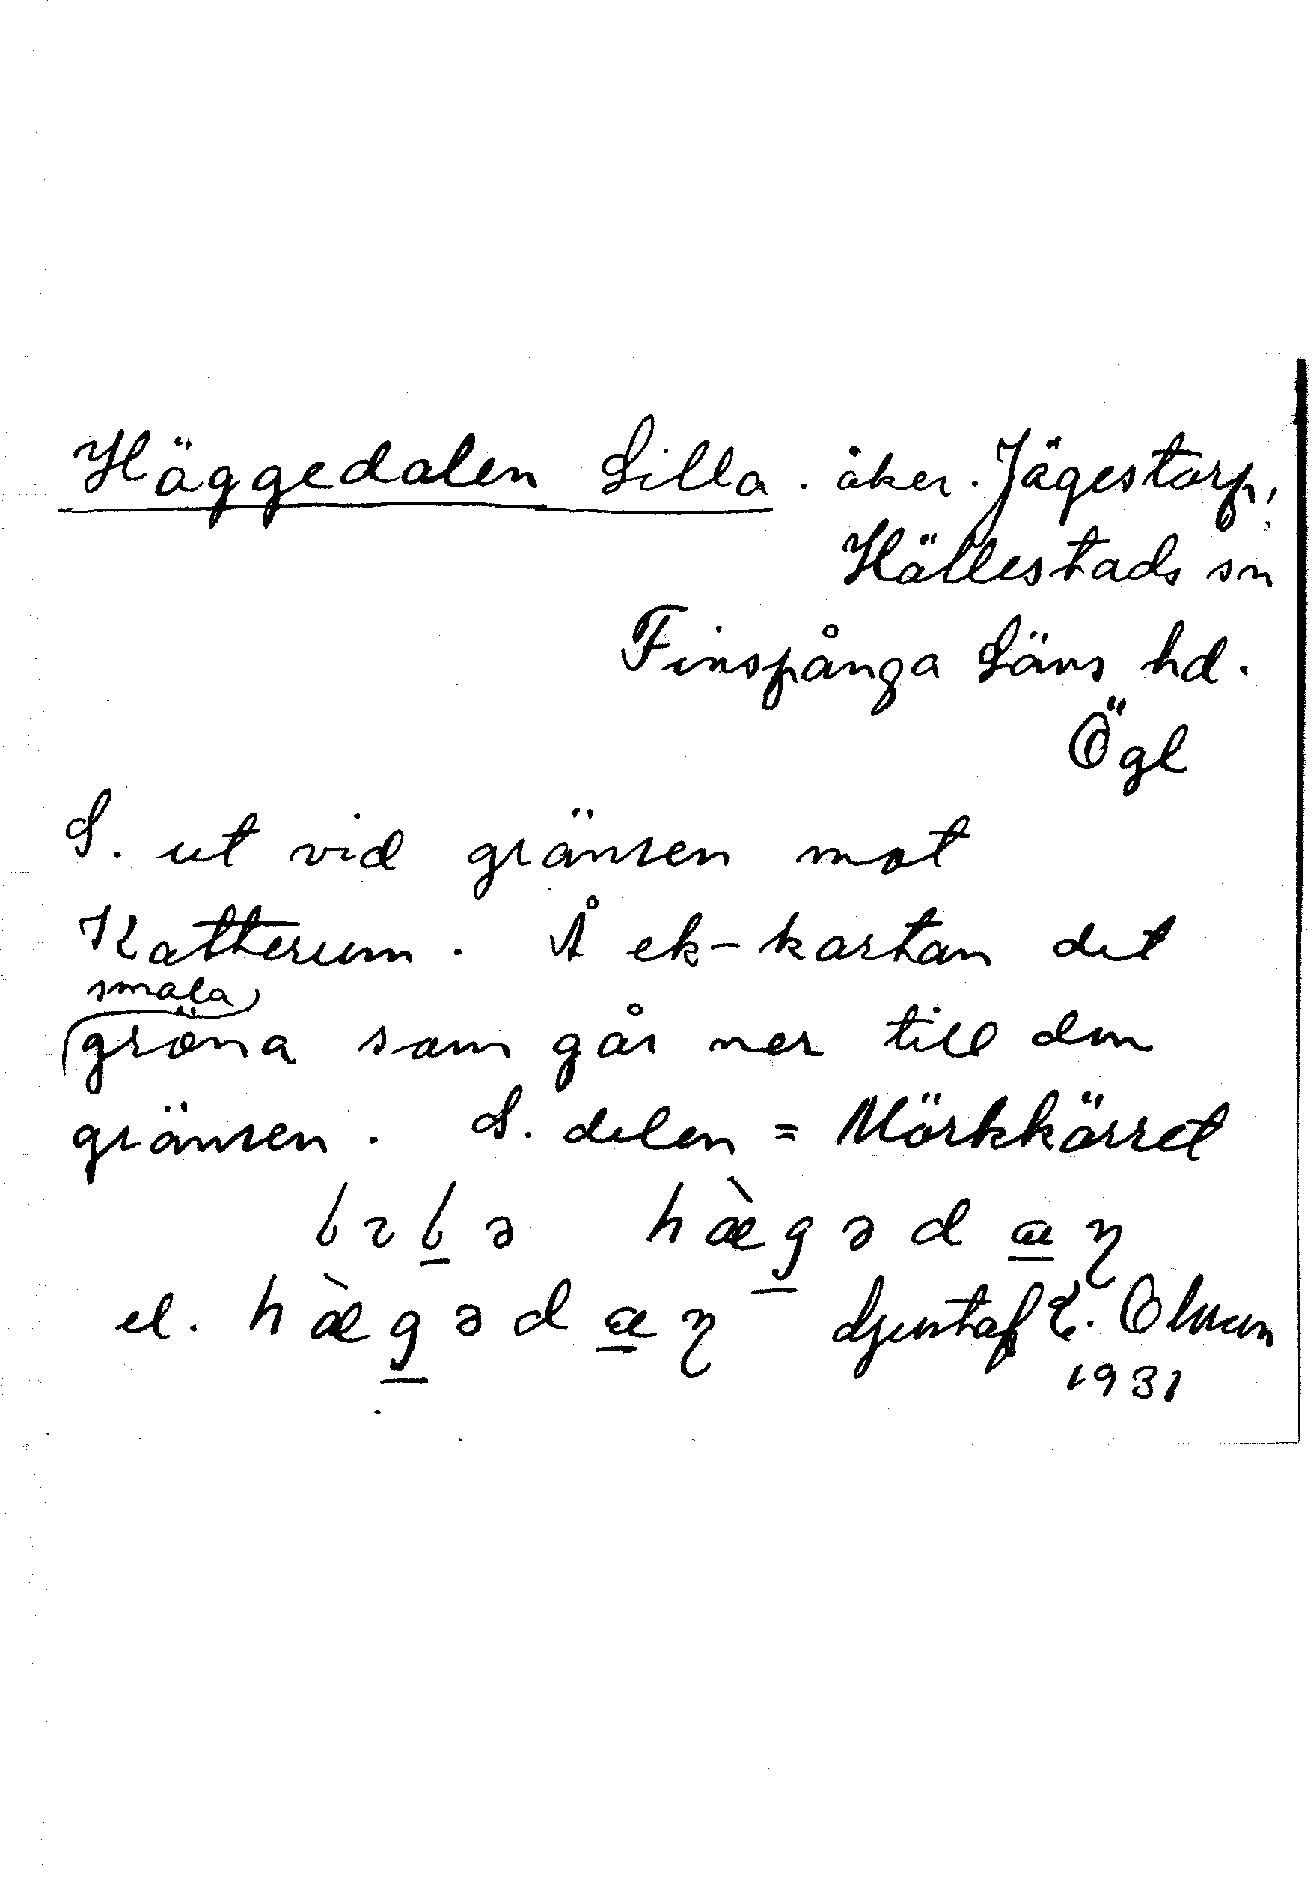 Häggedalen Lilla. åker. Jägestorp,
Hällestads sn
Finspånga Läns hd.
Ögl
S. ut vid gränsen mot
Katterum. Å ek-kartan det
smala
gröna som går ner till den
gränsen. S. delen = Mörkkärret
hæ̀gəd
el. hæ̀gəd Gustaf E. Olsson
1931